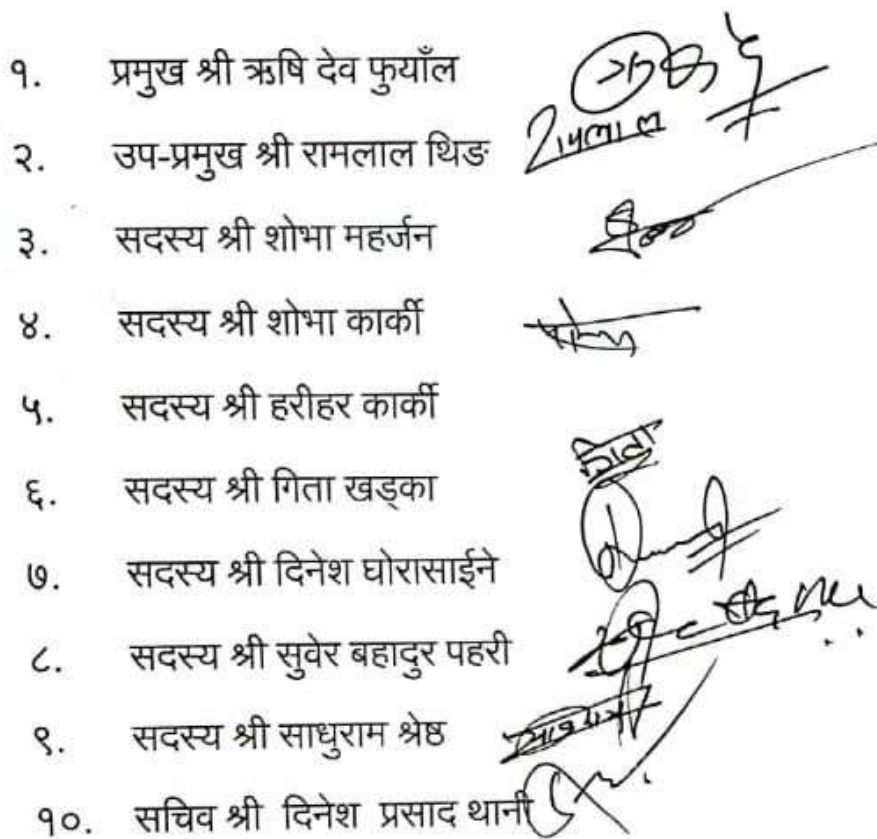 १. प्रमुख श्री ऋषि देव फुयाँल
२. उप-प्रमुख श्री रामलाल थिङ रामलाल
३. सदस्य श्री शोभा महर्जन
४. सदस्य श्री शोभा कार्की
५. सदस्य श्री हरीहर कार्की
६. सदस्य श्री गिता खड्का
७. सदस्य श्री दिनेश घोरासाईने
८. सदस्य श्री सुवेर बहादुर पहरी
९. सदस्य श्री साधुराम श्रेष्ठ
१०. सचिव श्री दिनेश प्रसाद थानी